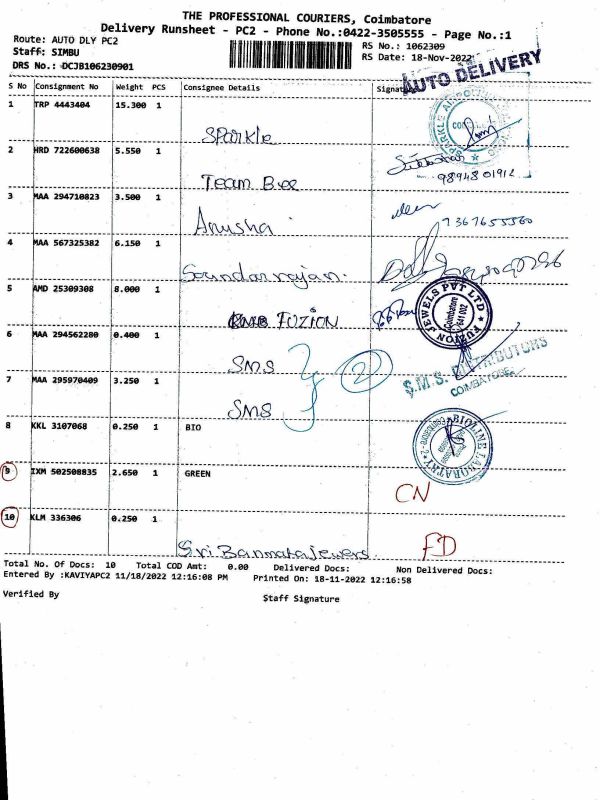 THE PROFESSIONAL COURIERS, Coimbatore
Delivery Runsheet - PC2 - Phone No.:0422-3505555 - Page No.:1
Route: AUTO DLY PC2
RS No.: 1062309
Staff: SIMBU
RS Date: 18-Nov-2022
DRS No.: DCJB106230901
AUTO DELIVERY
S No Consignment No Weight PCS Consignee Details Signature
1 TRP 4443404 15.300 1
Sparkle
2 HRD 722600638 5.550 1
Team Bee
9894801912
3 MAA 294710823 3.500 1
Anusha
7367655560
4 MAA 567325382 6.150 1
Soundarrajan.
5 AMD 25309308 8.000 1
FUZION
FUZION JEWELS PVT LTD
Coimbatore
641 002
6 MAA 294562280 0.400 1
SMS
2
S.M.S. DISTRIBUTORS
COIMBATORE
7 MAA 295970409 3.250 1
SMS
8 KKL 3107068 0.250 1 BIO
BIOLINE LABORATORY
9 IXM 502508835 2.650 1 GREEN
CN
10 KLM 336306 0.250 1
Sri Banmata Jewers
FD
Total No. Of Docs: 10 Total COD Amt: 0.00 Delivered Docs: Non Delivered Docs:
Entered By :KAVIYAPC2 11/18/2022 12:16:08 PM Printed On: 18-11-2022 12:16:58
Verified By Staff Signature